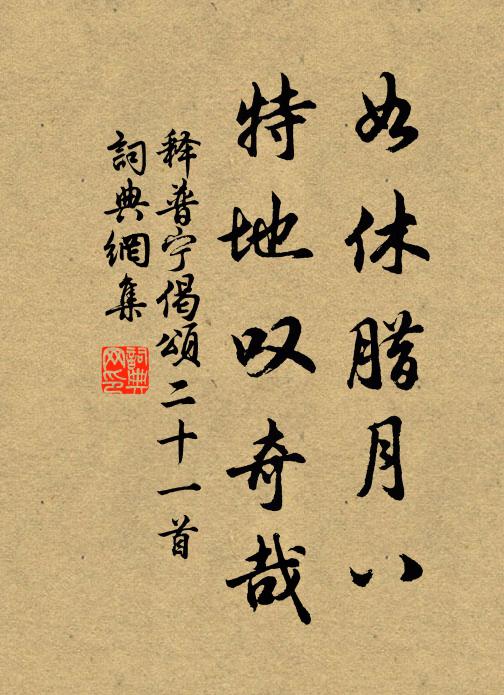 如休腊月八
特地叹奇哉
释普宁偈頌二十一首
詞典網集
詞典网印